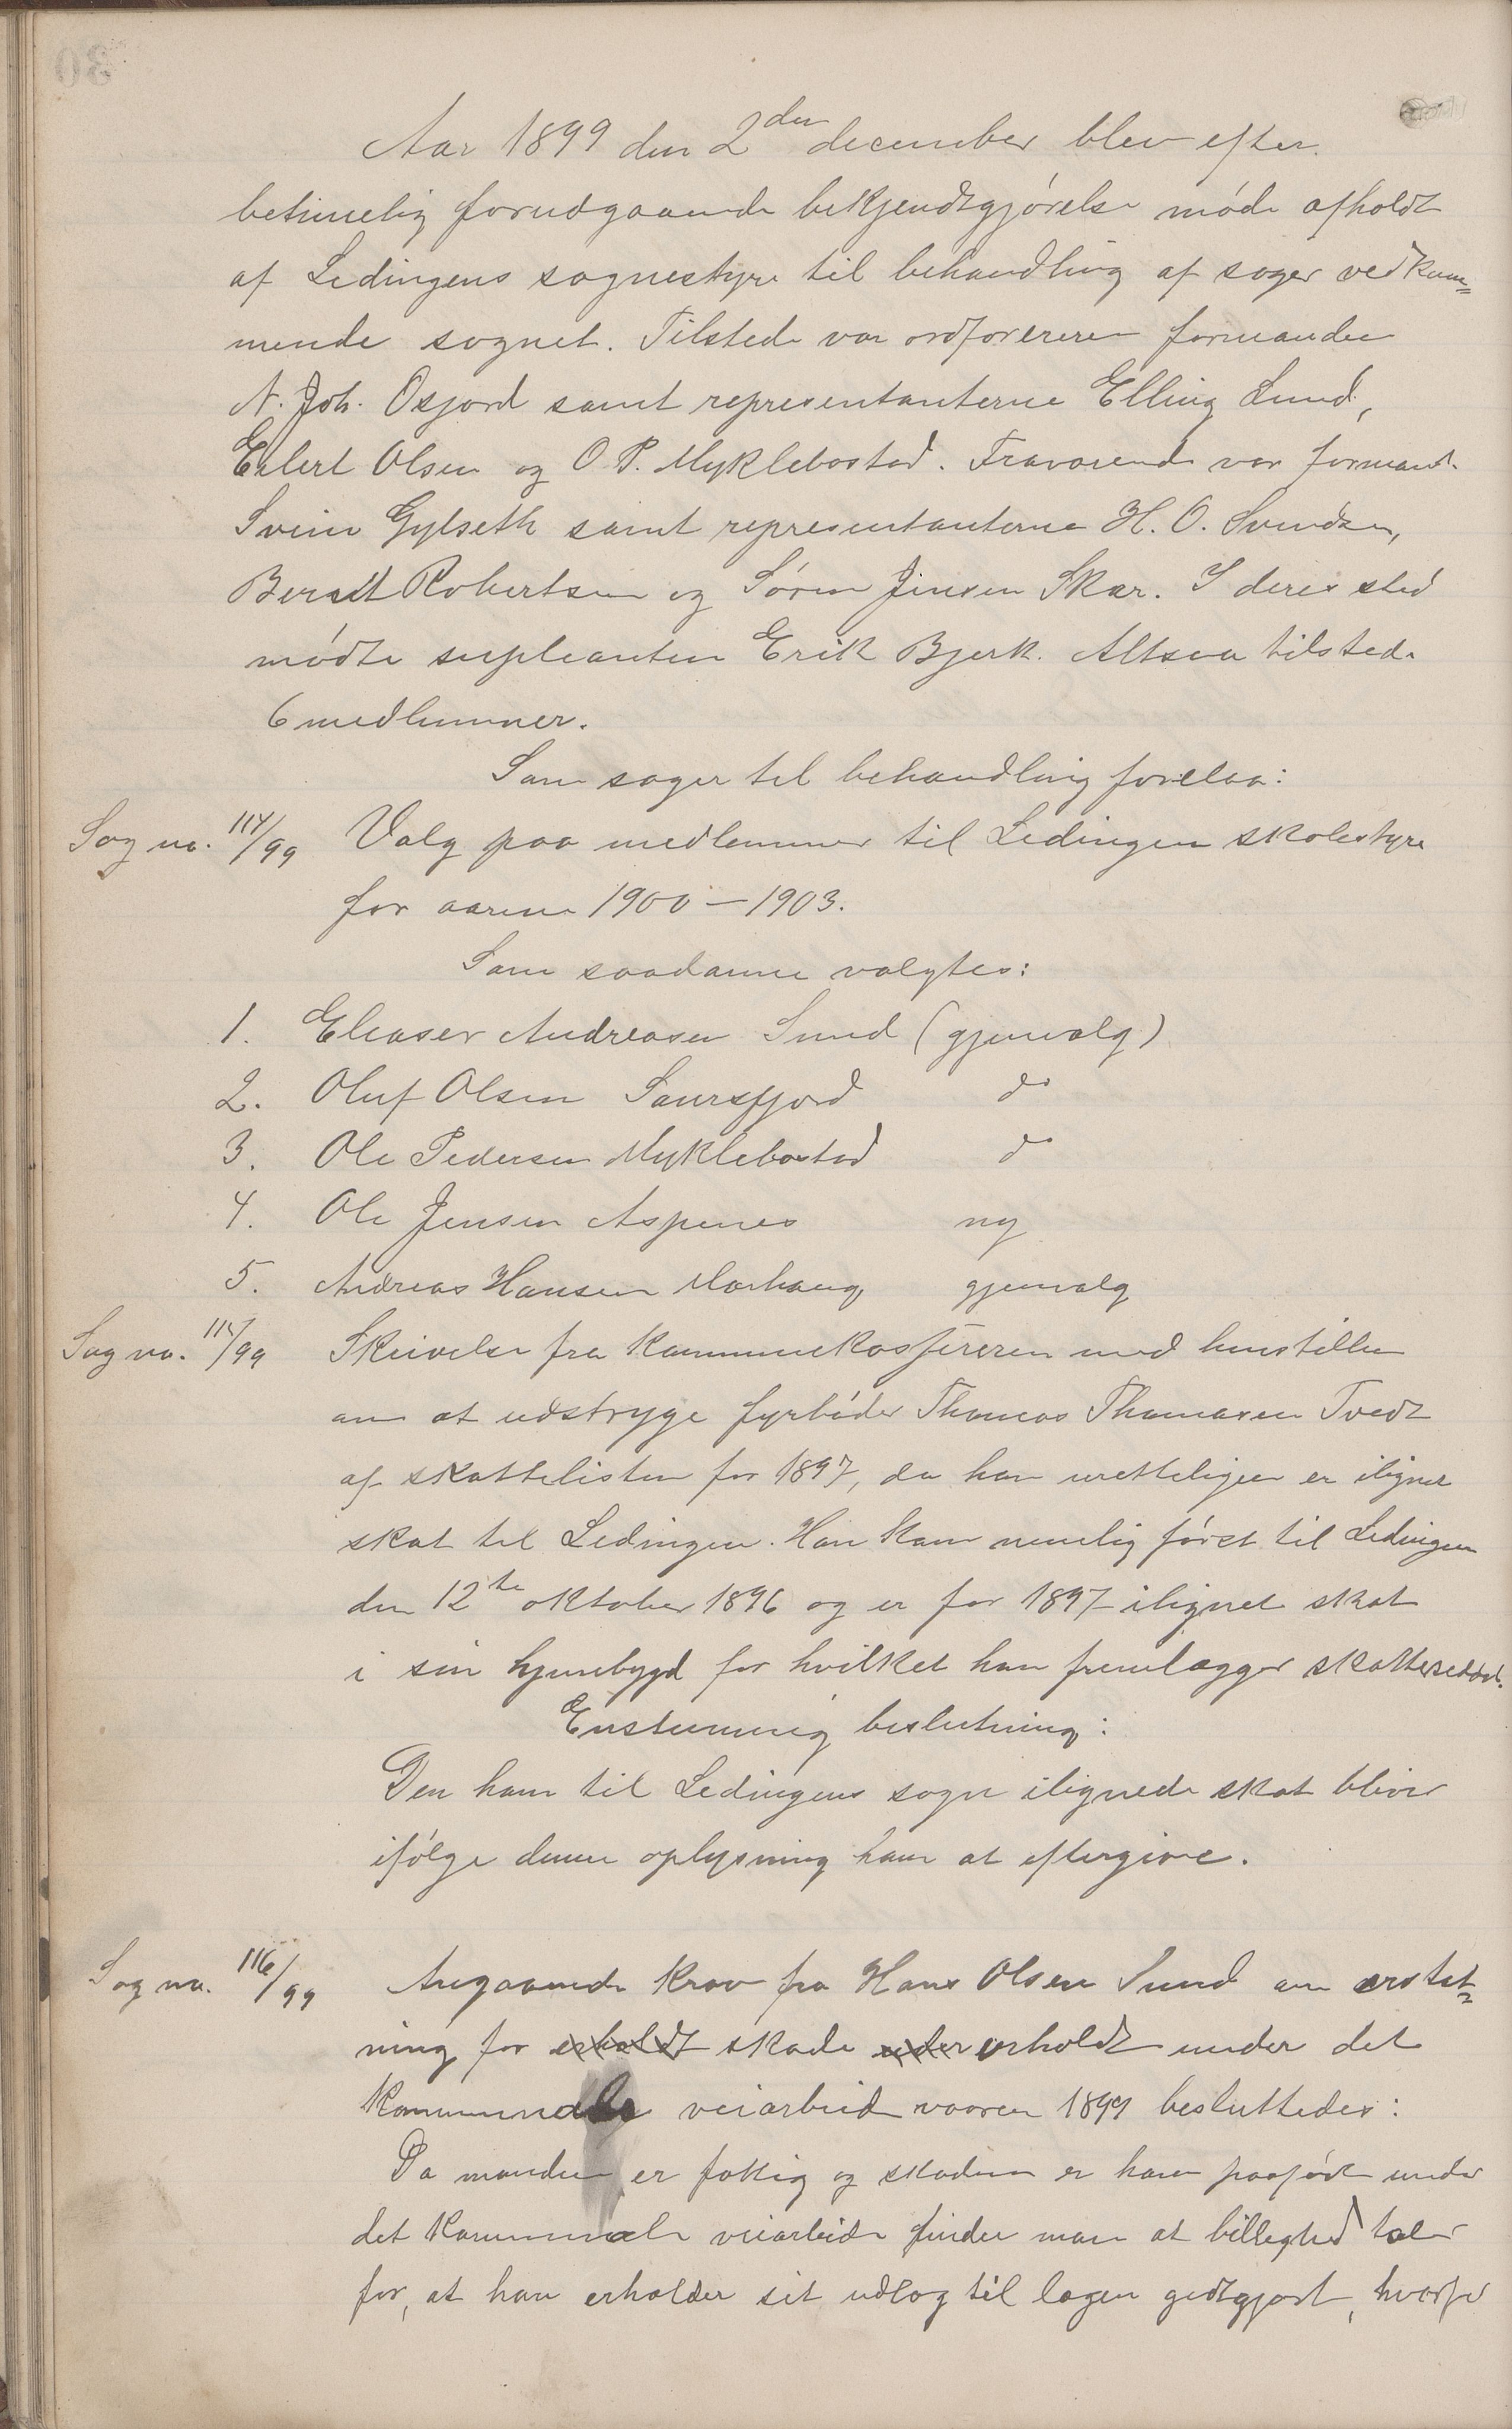 Aar 1899 den 2den december blev efter
betimelig forudgaaende bekjendtgjørelse møde afholdt
af Ledingens sognestyre til behandling af sager vedkom=
mende sognet. Tilstede var ordføreren formanden
N. Joh. Osjord samt representanterne Elling Lund,
Eilert Olsen og O. P. Myklebostad. Fraværende var formand
Svein Gylseth samt representanterne H. O. Svendsen,
Berndt Robertsen og Søren Jensen Skar. I deres sted
mødte supleanten Erik Bjerk. Altsaa tilstede
6 medlemmer.
Som sager til behandling forelaa:
Sag no. 114/99 Valg paa medlemmer til Ledingen skolestyre
for aarene 1900–1903.
Som saadanne valgtes:
1. Eleaser Andreasen Sund (gjenvalg)
2. Oluf Olsen Saursfjord do
3. Ole Pedersen Myklebostad do
4. Ole Jensen Aspenes ny
5. Andreas Hansen Marhaug gjenvalg
Sag no. 115/99 Skrivelse fra kommunekasfereren med henstillen
om at udstryge fyrbøder Thomas Thomasen Tvedt
af skattelisten for 1897, da han uretteligen er ilignet
skat til Ledingen. Han kom nemlig først til Ledingen
den 12te oktober 1896 og er for 1897 ilignet skat
i sin hjembygd for hvilket han fremlægger skatteseddel.
Enstemmig beslutning:
Den ham til Ledingens sogn ilignede skat bliver
ifølge denne oplysning ham at eftergive.
Sag no. 116/99 Angaaende krav fra Hans Olsen Sund om erstat=
ning for erholdt skade under erholdt under det
kommunale veiarbeid vaaren 1899 besluttedes:
Da manden er fattig og skaden er ham paaført under
det kommunale veiarbeide finder man at billighed taler
for, at han erholder sit udlæg til lægen godtgjort, hvorfor